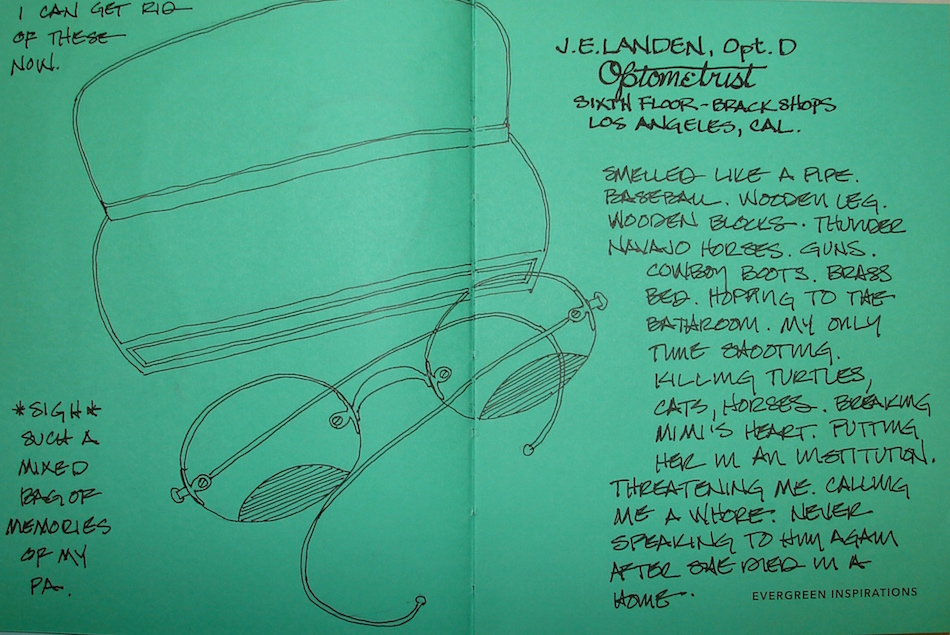 I CAN GET RID
OF THESE
NOW.
J.E. LANDEN, Opt. D
Optometrist
SIXTH FLOOR - BRACK SHOPS
LOS ANGELES, CAL.
SMELLED LIKE A PIPE.
BASEBALL. WOODEN LEG.
WOODEN BLOCKS. THUNDER
NAVAJO HORSES. GUNS.
COWBOY BOOTS. BRASS
BED. HOPPING TO THE
BATHROOM. MY ONLY
TIME SHOOTING.
KILLING TURTLES,
CATS, HORSES. BREAKING
MIMI'S HEART. PUTTING
HER IN AN INSTITUTION.
THREATENING ME. CALLING
ME A WHORE. NEVER
SPEAKING TO HIM AGAIN
AFTER SHE DIED IN A
HOME.
*SIGH*
SUCH A
MIXED
BAG OF
MEMORIES
OF MY
PA.
EVERGREEN INSPIRATIONS